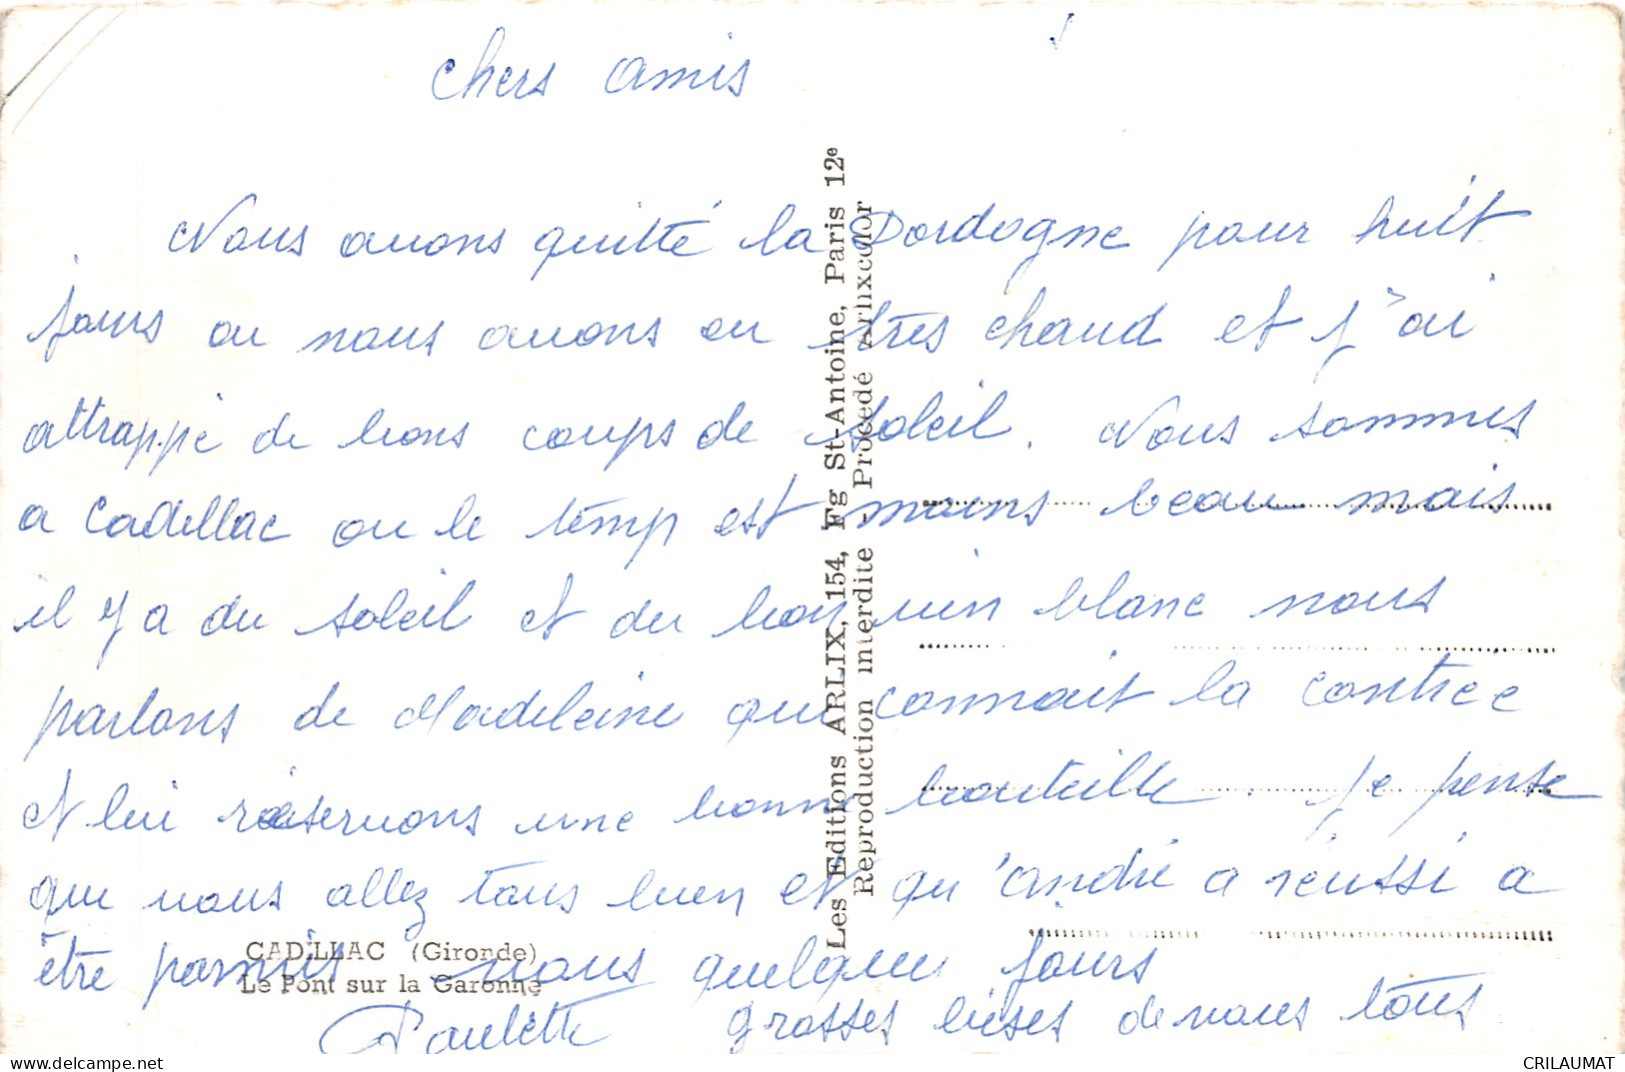 chers amis
Nous avons quitté la Dordogne pour huit
jours ou nous avons eu très chaud et j'ai
attrappé de bons coups de soleil. Nous sommes
a Cadillac ou le temp est moins beau mais
il y a du soleil et du bon vin blanc nous
parlons de Madeleine qui connait la contree
et lui réservons une bonne bouteille. Je pense
que vous allez tous bien et qu'andré a réussi a
être parmis vous quelques jours
grosses bises de nous tous
Paulette
CADILLAC (Gironde)
Le Pont sur la Garonne
Les Editions ARLIX, 154, Fg St-Antoine, Paris 12e
Reproduction interdite - Procédé Arlixcolor
delcampe.net
CRILAUMAT